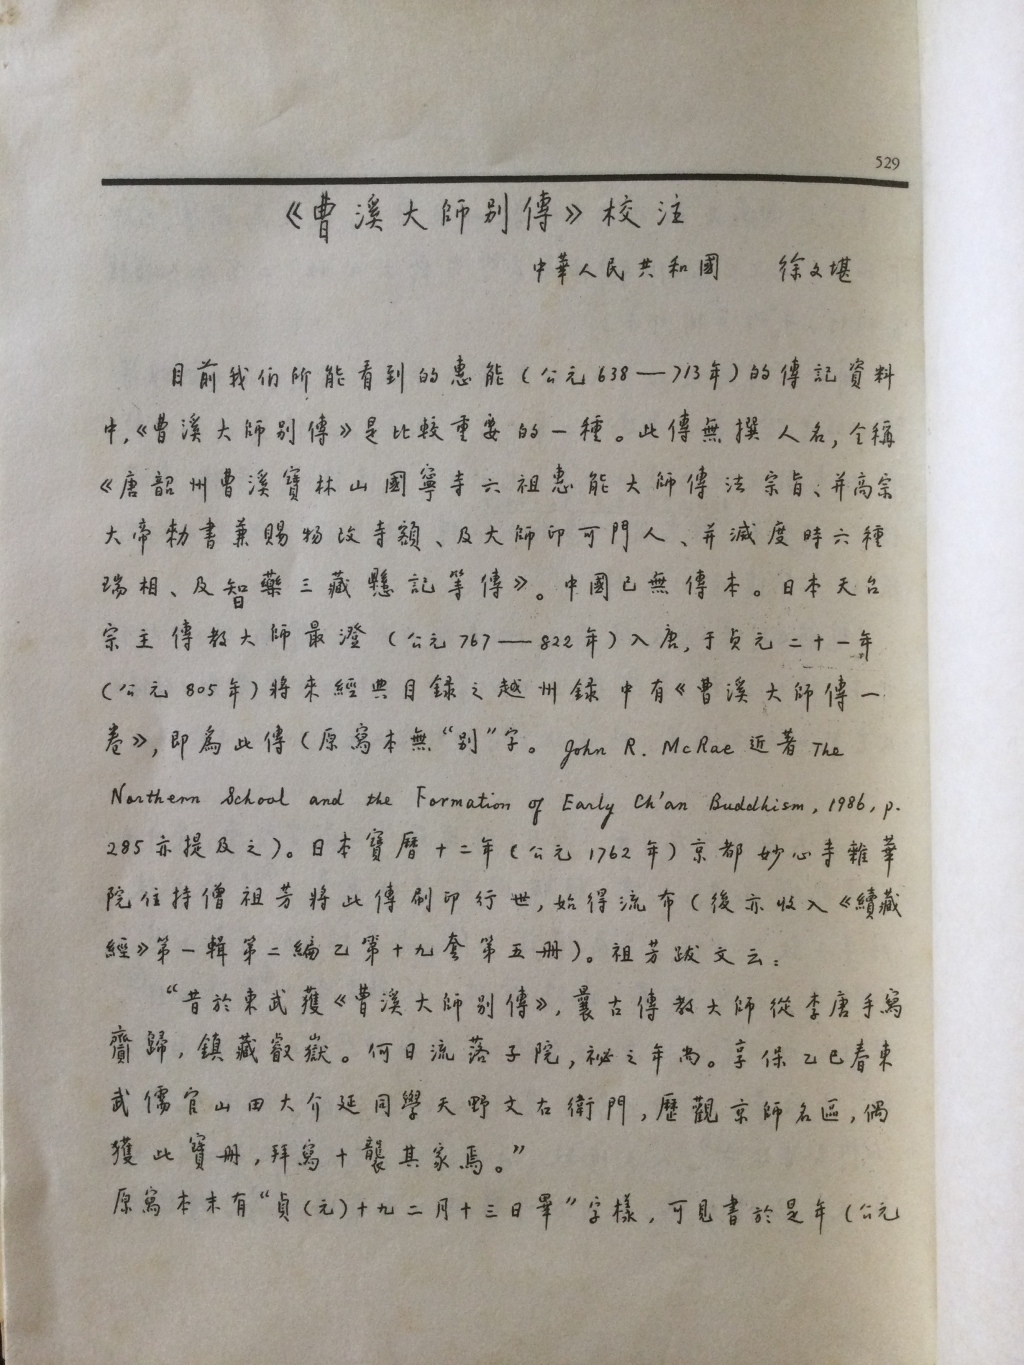 529
《曹溪大師别傳》校注
中華人民共和國 徐文堪
目前我們所能看到的惠能(公元638—713年)的傳記資料
中,《曹溪大師别傳》是比較重要的一種。此傳無撰人名,全稱
《唐韶州曹溪寶林山國寧寺六祖惠能大師傳法宗旨、并高宗
大帝勅書兼賜物改寺額、及大師印可門人、并滅度時六種
瑞相、及智藥三藏懸記等傳》。中國已無傳本。日本天台
宗主傳教大師最澄(公元767—822年)入唐,于貞元二十一年
(公元805年)將來經典目録之越州録中有《曹溪大師傳一
卷》,即為此傳(原寫本無“别”字。John R. McRae 近著 The
Northern School and the Formation of Early Ch'an Buddhism, 1986, p.
285亦提及之)。日本寶曆十二年(公元1762年)京都妙心寺雜華
院住持僧祖芳將此傳刷印行世,始得流布(後亦收入《續藏
經》第一輯第二編乙第十九套第五册)。祖芳跋文云:
“昔於東武獲《曹溪大師别傳》,曩古傳教大師從李唐手寫
齎歸,鎮藏叡嶽。何日流落子院,祕之年尚。享保乙巳春東
武儒官山田大介延同學天野文右衛門,歷觀京師名區,偶
獲此寶册,拜寫十襲其家焉。”
原寫本末有“貞(元)十九二月十三日畢”字樣,可見書於是年(公元